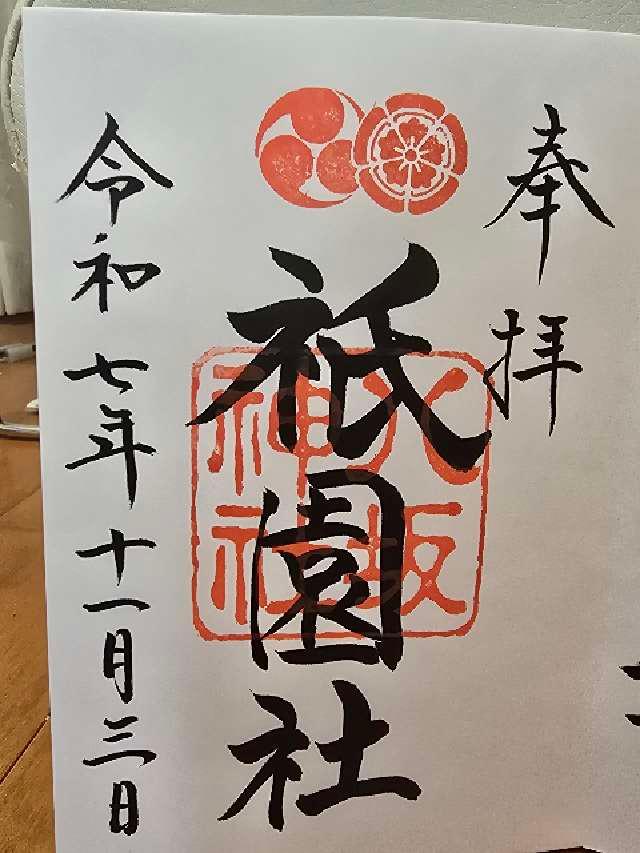 奉拝
祇園社
八坂
神社
令和七年十一月三日